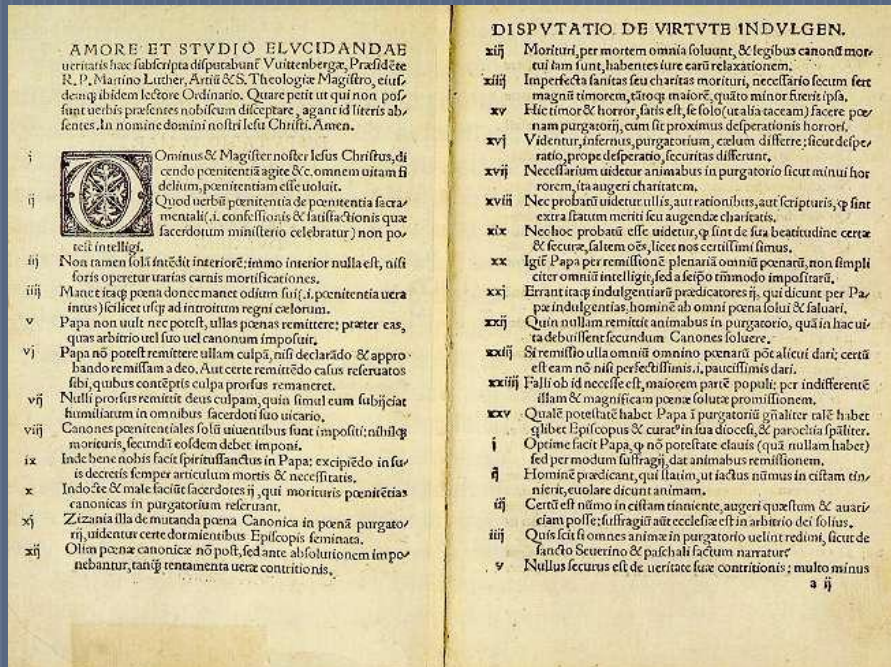 AMORE ET STVDIO ELVCIDANDAE
ueritatis hæc subscripta disputabunť Vuittenbergæ, Præsidēte
R. P. Martino Luther, Artiū & S. Theologiæ Magistro, eius/
demq; ibidem lectore Ordinario. Quare petit ut qui non pos/
sunt uerbis præsentes nobiscum disceptare, agant id literis ab/
sentes. In nomine domini nostri Iesu Christi. Amen.
i DOminus & Magister noster Iesus Christus, di
cendo pœnitentiā agite &c. omnem uitam fi
delium, pœnitentiam esse uoluit.
ij Quod uerbū pœnitentia de pœnitentia sacra/
mentali (.i. confessionis & satisfactionis quæ
sacerdotum ministerio celebratur) non po/
test intelligi.
iij Non tamen solā intēdit interiorē: immo interior nulla est, nisi
foris operetur uarias carnis mortificationes.
iiij Manet itaq; pœna donec manet odium sui (.i. pœnitentia uera
intus) scilicet usq; ad introitum regni cælorum.
v Papa non uult nec potest, ullas pœnas remittere: præter eas,
quas arbitrio uel suo uel canonum imposuit.
vj Papa nō potest remittere ullam culpā, nisi declarādo & appro/
bando remissam a deo. Aut certe remittēdo casus reseruatos
sibi, quibus contēptis culpa prorsus remaneret.
vij Nulli prorsus remittit deus culpam, quin simul eum subijciat
humiliatum in omnibus sacerdoti suo uicario.
viij Canones pœnitentiales solū uiuentibus sunt impositi: nihilq;
morituris, secundū eosdem debet imponi.
ix Inde bene nobis facit spiritussanctus in Papa: excipiēdo in su/
is decretis semper articulum mortis & necessitatis.
x Indocte & male faciūt sacerdotes ij, qui morituris pœnitētias
canonicas in purgatorium reseruant.
xj Zizania illa de mutanda pœna Canonica in pœnā purgato/
rij, uidentur certe dormientibus Episcopis seminata.
xij Olim pœnæ canonicæ nō post, sed ante absolutionem impo/
nebantur, tanq̄ tentamenta ueræ contritionis.
DISPVTATIO DE VIRTVTE INDVLGEN.
xiij Morituri, per mortem omnia soluunt, & legibus canonū mor/
tui iam sunt, habentes iure earū relaxationem.
xiiij Imperfecta sanitas seu charitas morituri, necessario secum fert
magnū timorem, tātoq; maiorē, quāto minor fuerit ipsa.
xv Hic timor & horror, satis est, se solo (ut alia taceam) facere pœ/
nam purgatorij, cum sit proximus desperationis horrori.
xvj Videntur, infernus, purgatorium, cælum differre: sicut despe/
ratio, prope desperatio, securitas differunt.
xvij Necessarium uidetur animabus in purgatorio sicut minui hor
rorem, ita augeri charitatem.
xviij Nec probatū uidetur ullis, aut rationibus, aut scripturis, q̄ sint
extra statum meriti seu augendæ charitatis.
xix Nec hoc probatū esse uidetur, q̄ sint de sua beatitudine certæ
& securæ, saltem oēs, licet nos certissimi simus.
xx Igiť Papa per remissionē plenariā omniū pœnarū, non simpli
citer omniū intelligit, sed a seipo tm̄modo impositarū.
xxj Errant itaq; indulgentiarū prædicatores ij, qui dicunt per Pa/
pæ indulgentias, hominē ab omni pœna solui & saluari.
xxij Quin nullam remittit animabus in purgatorio, quā in hac ui/
ta debuissent secundum Canones soluere.
xxiij Si remissio ulla omniū omnino pœnarū pōt alicui dari: certū
est eam nō nisi perfectissimis .i. paucissimis dari.
xxiiij Falli ob id necesse est, maiorem partē populi: per indifferentē
illam & magnificam pœnæ solutæ promissionem.
xxv Qualē potestatē habet Papa ī purgatoriū gn̄aliter talē habet
q̄libet Episcopus & curatꝰ in sua diocesi, & parochia sp̄aliter.
i Optime facit Papa, q̄ nō potestate clauis (quā nullam habet)
sed per modum suffragij, dat animabus remissionem.
ij Hominē prædicant, qui statim, ut iactus nūmus in cistam tin/
nierit, euolare dicunt animam.
iij Certū est nūmo in cistam tinniente, augeri quæstum & auari/
ciam posse: suffragiū aūt ecclesiæ est in arbitrio dei solius.
iiij Quis scit si omnes animæ in purgatorio uelint redimi, sicut de
sancto Seuerino & paschali factum narratur?
v Nullus securus est de ueritate suæ contritionis: multo minus
a ij